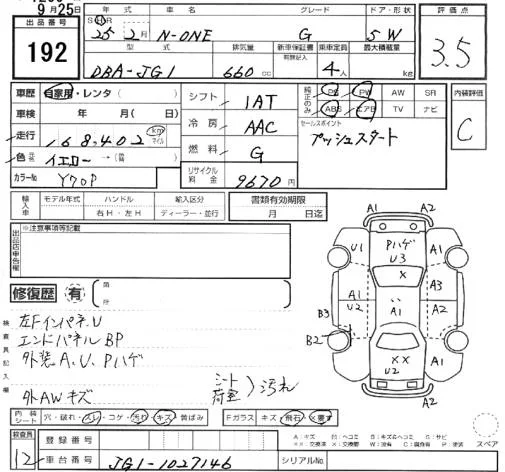 9月25日
出品番号
192
年式 車名 グレード ドア・形状
SHR 25年 2月 N-ONE G 5W
型式 排気量 新車保証書 乗車定員 最大積載量
DBA-JG1 660cc 4人 kg
評価点
3.5
内装評価
C
車歴 自家用・レンタ( )
車検 年 月( 日)
走行 168,402 km マイル
色 イエロー→(
カラーNo Y70P
シフト 1AT
冷房 AAC
燃料 G
リサイクル料金 9670円
純正のみ PS PW AW SR
ABS エアB TV ナビ
セールスポイント
プッシュスタート
輸入車 モデル年式 ハンドル 輸入区分
右H・左H ディーラー・並行
書類有効期限
月 日迄
出品店申告欄
※注意事項等記載
修復歴 有 箇所
検査員記入欄
左Fインパネ、U
エンドパネルBP
外装A、U、Pハゲ
外AWキズ
シート 荷室 )汚れ
内装シート 穴・破れ・スレ・コゲ・汚れ・キズ・黄ばみ
Fガラス キズ・飛石・×要す
検査員 12
登録番号
車台番号 JG1-1027146
シリアルNo.
A1 A2
U1 Pハゲ U3 A1
×
A1 U2 A1 A3
B3 A2
B2
×× U2
A1 A2
スペア